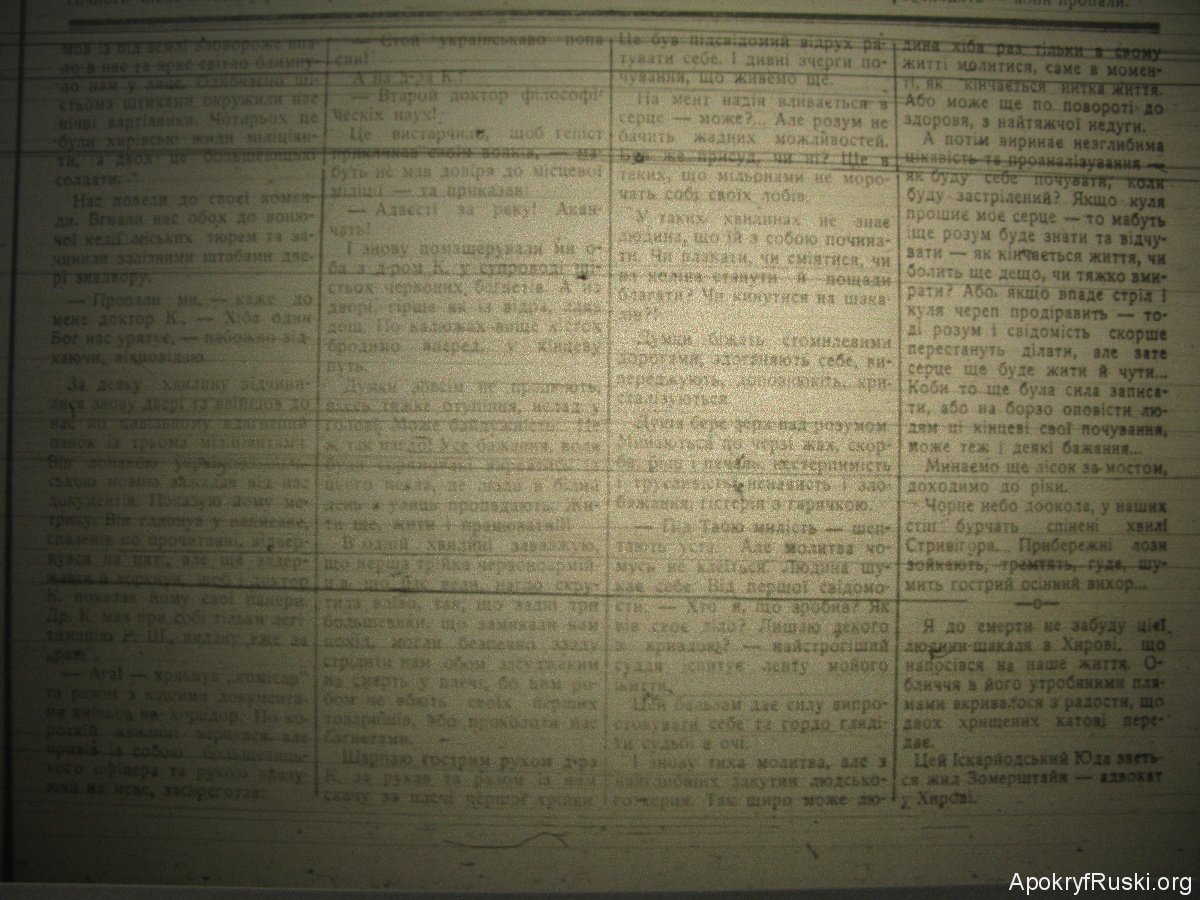 мов із під землі зловороже впа-
ло в нас та ярке світло блимну-
ло нам у лице. Одночасно ші-
стьома штиками окружили нас
нічні вартівники. Чотирьох це
були хирівські жиди міліціян-
ти, а двох це большевицькі
солдати.
Нас повели до твоєї коман-
ди. Вгнали нас обох до воню-
чої келії міських тюрем та за-
чинили залізними штабами две-
рі знадвору.
— Пропали ми, — каже до
мене доктор К., — Хіба один
Бог нас урятує, — набожно зід-
хаючи, відповідаю.
За деяку хвилину відчини-
лися знову двері та ввійшов до
нас по цивільному вдягнений
панок із трьома міліціянтами.
Він ломаною
ською мовою зажадав від нас
документів. Показую йому мет-
рику. Він глянув у написане,
спаленів по прочитанні, відвер-
нувся на п'яті, але ще задер-
жався й воркнув, щоб і доктор
К. показав йому свої папери.
Др. К. мав при собі тільки легі-
тимацію Р. Ш., видану вже за
„раю".
— Ага! — хракнув „комісар"
та разом з нашими документа-
ми вийшов на коридор. По ко-
роткій хвилині вернувся, але
привів із собою большевиць-
кого офіцера та рукою вказу-
ючи на мене, засвереготав:
— Єтой українськаво попа
син!
А на д-ра К.:
— Втарой доктор філософі-
ческіх наук!
Це вистарчило, щоб
прикликав своїх вояків, — ма-
буть не мав довіря до місцевої
міліції — та приказав:
— Адвєсті за реку! Акан-
чать!
І знову помашерували ми о-
ба з д-ром К. у супроводі ші-
стьох червоних багнетів. А на
дворі гірше як із відра, лляв
дощ. По калюжах вище кісток
бродимо вперед, у кінцеву
путь.
Думки зовсім не працюють,
якесь тяжке отупіння, безлад у
голові. Може байдужність. Не
ж так
були
цього пекла, де люди в білий
день з улиць пропадають. Жи-
ти ще, жити і працювати!!!
В одній хвилині завважую,
що перша трійка червоноармій-
ців, що йде вели, нагло скру-
тила вліво, так, що задні три
большевики, що замикали наш
похід, могли безпечно ззаду
стріляти нам обом засудженим
на смерть у плечі, бо цим ро-
бом не вбють своїх перших
товаришів, або проколоти нас
багнетами.
Шарпаю гострим рухом д-ра
К. за рукав та разом із ним
скачу за плечі першої трійки.
Це був підсвідомий відрух ря-
тувати себе. І дивні вчерги по-
чування, що живемо ще.
На мент надія вливається в
серце — може?... Але розум не
бачить жадних можливостей.
Був же присуд, чи ні? Ще в
таких, що мільйонами не моро-
чать собі своїх лобів.
У таких хвилинах не знає
людина, що їй з собою почина-
ти. Чи плакати, чи сміятися, чи
на коліна станути й пощади
благати? Чи кинутися на шака-
лів?!
Думки біжать стомилевими
дорогами, здоганяють себе, ви-
переджують, доповнюють, кри-
сталізуються.
Душа бере верх над розумом.
Міняються по черзі жах, скор-
ба, біль і печаль, нестерпимість
і трусливість, ненависть і зло-
бажання, гістерія з гарячкою.
— Під Твою милість — шеп-
тають уста. Але молитва чо-
мусь не клеїться. Людина шу-
кає себе. Від першої свідомо-
сти. — Хто я, що зробив? Як
вів своє діло? Лишаю декого
з кривдою? — найстрогіший
суддя іспитує ленту мойого
життя.
Цей бальзам дає силу випро-
стовувати себе та гордо гляді-
ти судьбі в очі.
І знову тиха молитва, але з
найглибших закутин людсько-
го серця. Так щиро може лю-
дина хіба раз тільки в свому
житті молитися, саме в момен-
ті, як кінчається нитка життя.
Або може ще по повороті до
здоровя, з найтяжчої недуги.
А потім виринає незглибима
цікавість та проаналізування —
як буду себе почувати, коли
буду застрілений? Якщо куля
прошиє моє серце — то мабуть
іще розум буде знати та відчу-
вати — як кінчається життя, чи
болить ще дещо, чи тяжко вми-
рати? Або якщо впаде стріл і
куля череп продіравить — то-
ді розум і свідомість скорше
перестануть ділати, але зате
серце ще буде жити й чути...
Коби то ще була сила записа-
ти, або на борзо оповісти лю-
дям ці кінцеві свої почування,
може теж і деякі бажання...
Минаємо ще лісок за мостом,
доходимо до ріки.
Чорне небо доокола, у наших
стіп бурчать спінені хвилі
Стривігора. Прибережні лози
зойкають, трамтять, гуде, шу-
мить гострий осінний вихор...
—о—
Я до смерти не забуду цієї
людини-шакаля в Хирові, що
напосівся на наше життя. О-
бличчя в його утробяними пля-
мами вкривалося з радости, що
двох хрищених катові пере-
дає.
Цей Іскарйодський Юда зветь-
ся жид Зомерштайн — адвокат
у Хирові.
ApokryfRuski.org